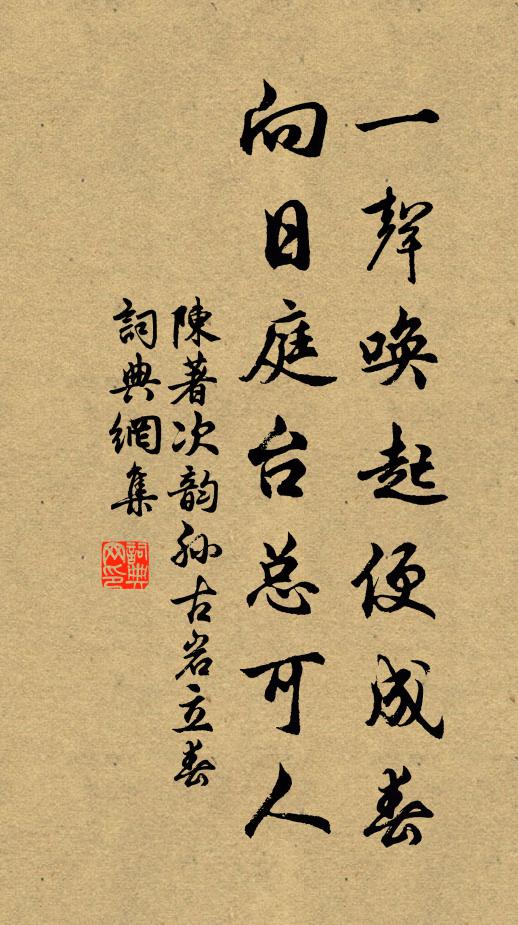 一聲喚起便成春
向日庭台总可人
陳著次韵孙古岩立春
詞典網集
詞典網印